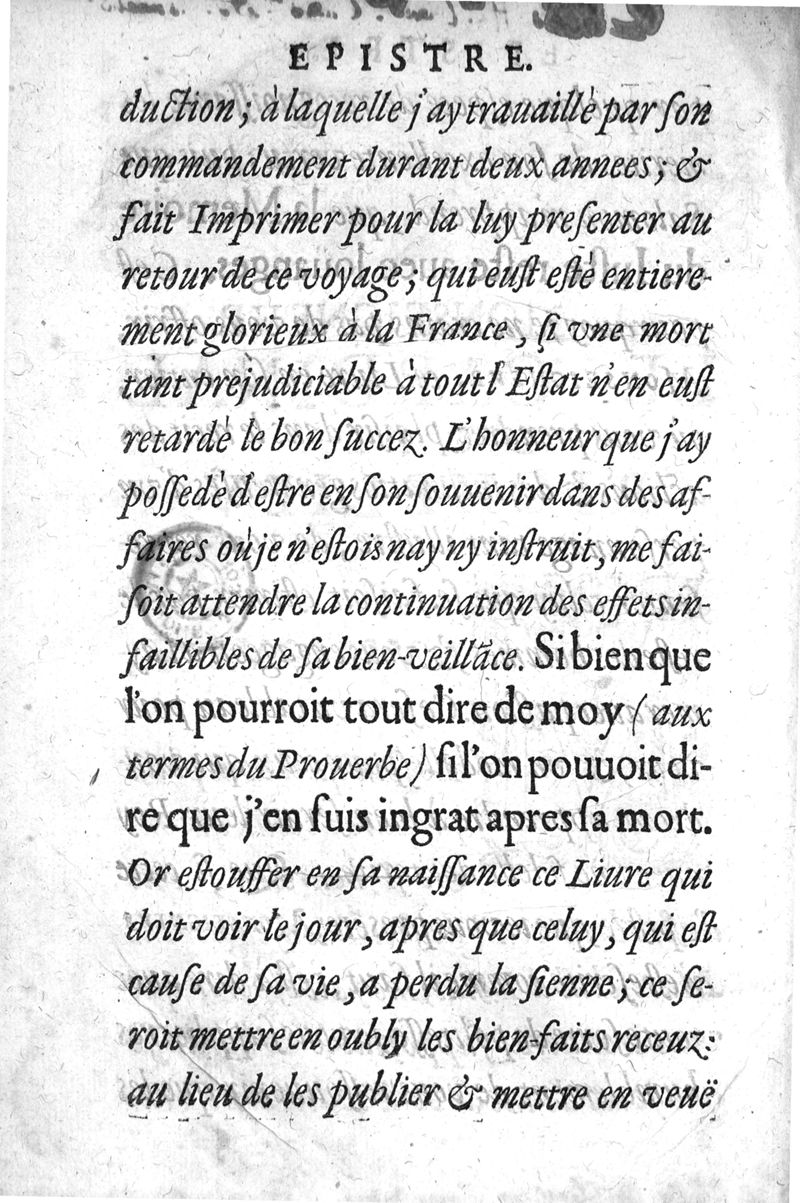 EPISTRE.
duction; à laquelle j'ay trauaillè par ſon
commandement durant deux annees; &
fait Imprimer pour la luy preſenter au
retour de ce voyage; qui euſt eſtè entiere-
ment glorieux à la France, ſi vne mort
tant prejudiciable à tout l'Eſtat n'en euſt
retardè le bon ſuccez. L'honneur que j'ay
poſſedè d'eſtre en ſon ſouuenir dans des af-
faires où je n'eſtois nay ny inſtruit, me fai-
ſoit attendre la continuation des effets in-
faillibles de ſa bien-veillãce. Si bien que
l'on pourroit tout dire de moy (aux
termes du Prouerbe) ſi l'on pouuoit di-
re que j'en ſuis ingrat apres ſa mort.
Or eſtouffer en ſa naiſſance ce Liure qui
doit voir le jour, apres que celuy, qui eſt
cauſe de ſa vie, a perdu la ſienne; ce ſe-
roit mettre en oubly les bien-faits receuz:
au lieu de les publier & mettre en veuë